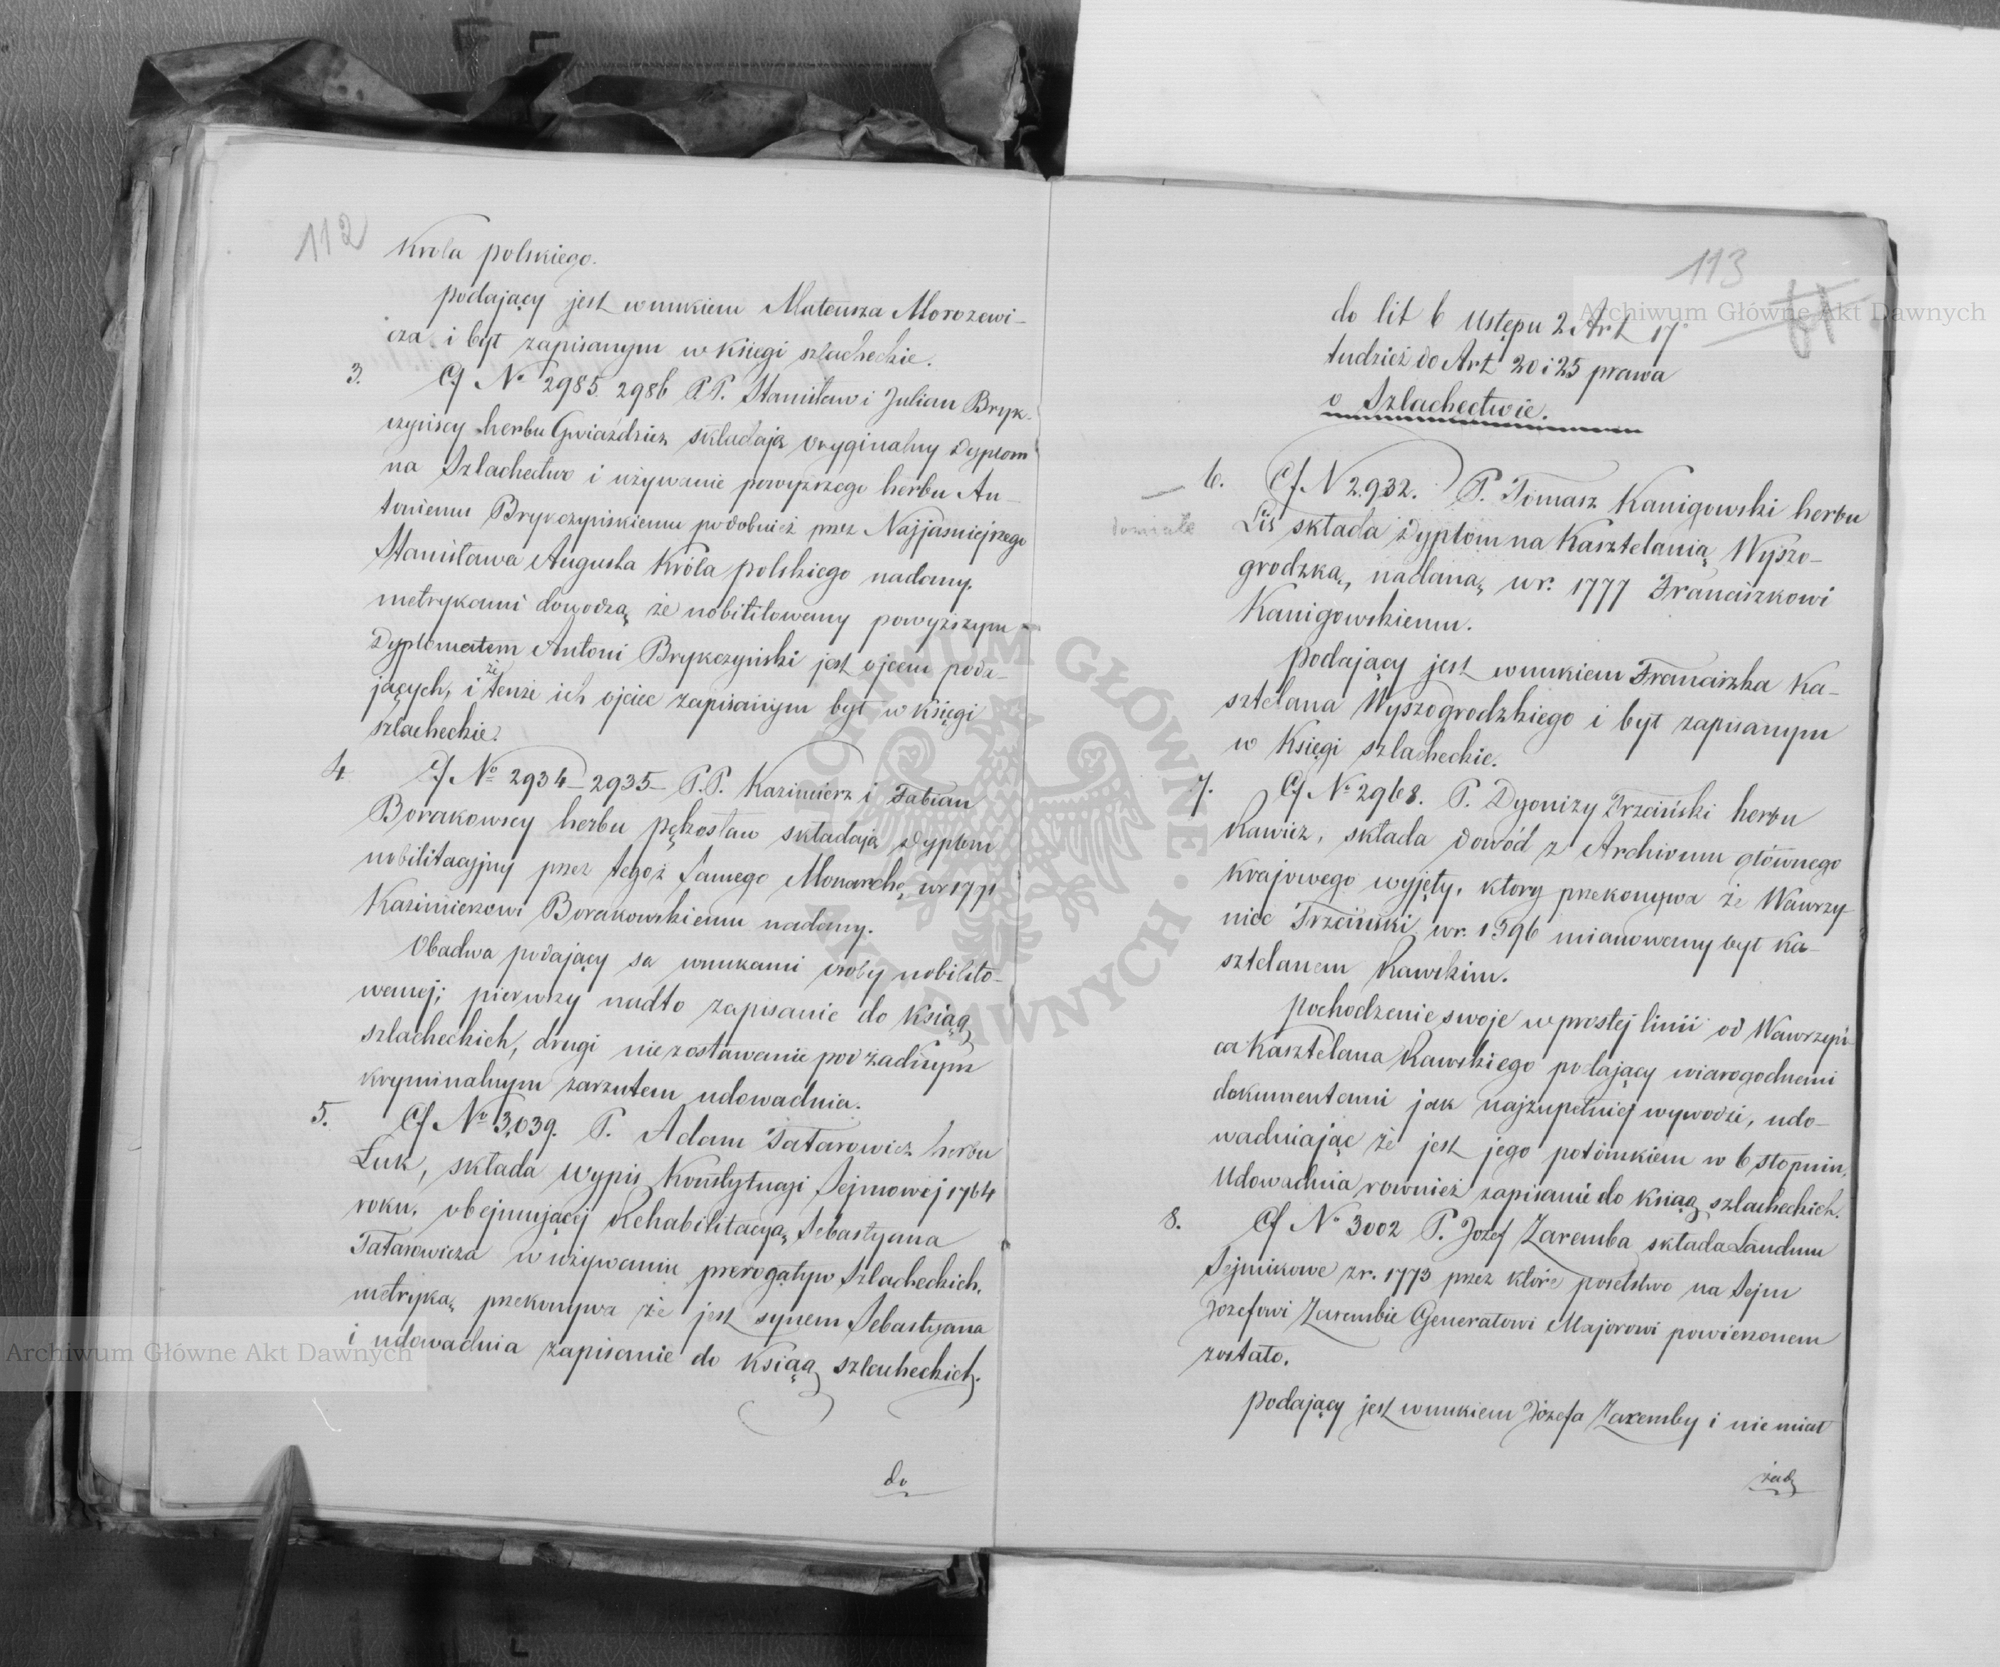 112
Króla polskiego.
podający jest wnukiem Mateusza Morozewi-
cza i był zapisanym w Księgi szlacheckie.
3. Cf No 2985. 2986 P.P. Stanisław i Julian Bryk-
czyńscy herbu Gwiaździcz składają oryginalny Dyplom
na Szlachectwo i używanie powyższego herbu An-
toniemu Brykczyńskiemu podobnież przez Najjaśniejszego
Stanisława Augusta Króla polskiego nadany.
metrykami dowodzą że nobilitowany powyższym
Dyplomatem Antoni Brykczyński jest ojcem poda-
jących, i że tenże ich ojciec zapisanym był w Księgi
szlacheckie.
4. Cf No 2934-2935- P.P. Kazimierz i Fabian
Borakowscy herbu pękosław składają Dyplom
nobilitacyjny przez tegoż samego Monarchę w r 1771
Kazimierzowi Borakowskiemu nadany.
Obadwa podający są wnukami osoby nobilito-
wanej; pierwszy nadto zapisanie do Ksiąg
szlacheckich, drugi niezostawanie pod żadnym
kryminalnym zarzutem udowadnia.
5. Cf No 3,039. P. Adam Tatarowicz herbu
Łuk, składa wypis Konstytucyi Sejmowej 1764
roku, obejmującej Rehabilitacyą Sebastyana
Tatarowicza w używaniu prerogatyw Szlacheckich.
metryką przekonywa że jest synem Sebastyana
i udowadnia zapisanie do Ksiąg szlacheckich.
do
113
do lit b Ustępu 2 Art 17
tudzież do Art 20 i 25 prawa
o Szlachectwie.
6. Cf N 2.932. P. Tomasz Kanigowski herbu
Lis składa Dyplom na Kasztelanią Wyszo-
grodzką, nadaną w r. 1777 Franciszkowi
Kanigowskiemu.
podający jest wnukiem Franciszka Ka-
sztelana Wyszogrodzkiego i był zapisanym
w Księgi szlacheckie.
7. Cf No 2968. P. Dyonizy Trzciński herbu
Rawicz, składa dowód z Archiwum głównego
Krajowego wyjęty, który przekonywa że Wawrzy-
niec Trzciński w r. 1596 mianowany był Ka-
sztelanem Rawskim.
pochodzenie swoje w prostej linii od Wawrzyń-
ca Kasztelana Rawskiego podający wiarogodnemi
dokumentami jak najzupełniej wywodzi, udo-
wadniając że jest jego potomkiem w 6 stopniu.
Udowadnia również zapisanie do Ksiąg szlacheckich.
8. Cf No 3002 P. Jozef Zaremba składa Laudum
Sejmikowe z r. 1773 przez które poselstwo na Sejm
Jozefowi Zarembie Generałowi Majorowi powierzonem
zostało.
podający jest wnukiem Józefa Zaremby i nie miał
żad
Archiwum Główne Akt Dawnych
Archiwum Główne Akt Dawnych
ARCHIWUM GŁÓWNE AKT DAWNYCH